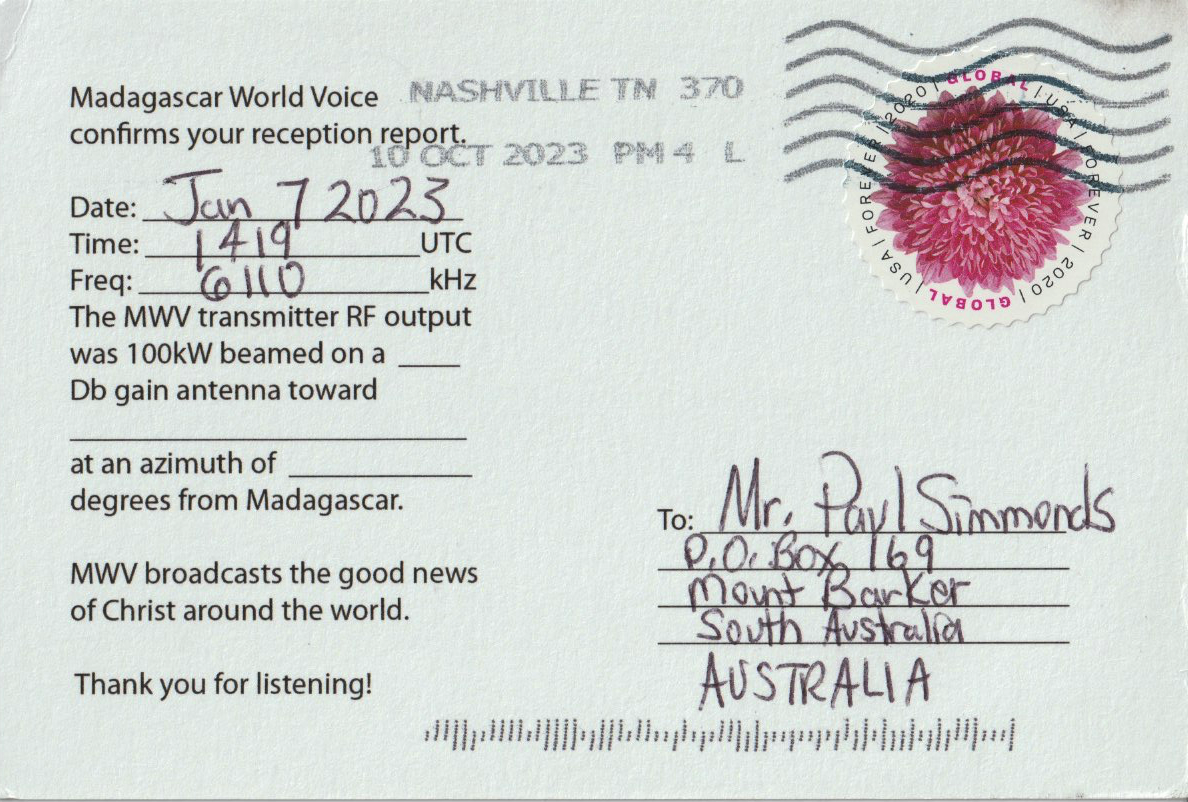 Madagascar World Voice
confirms your reception report.
NASHVILLE TN 370
10 OCT 2023 PM 4 L
GLOBAL | USA | FOREVER | 2020 | GLOBAL | USA | FOREVER | 2020 |
Date: Jan 7 2023
Time: 1419 UTC
Freq: 6110 kHz
The MWV transmitter RF output
was 100kW beamed on a ____
Db gain antenna toward
____
at an azimuth of ____
degrees from Madagascar.
MWV broadcasts the good news
of Christ around the world.
Thank you for listening!
To: Mr. Paul Simmonds
P.O. Box 169
Mount Barker
South Australia
AUSTRALIA